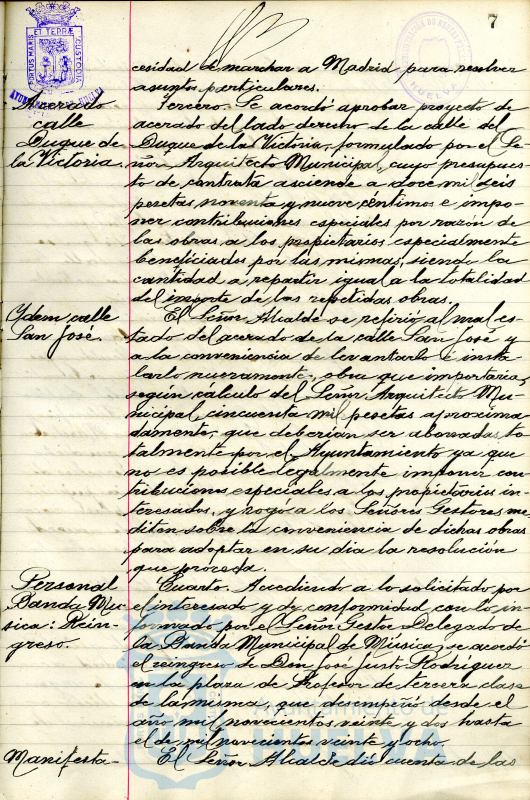 7
PORTUS MARIS ET TERRÆ CUSTODIA
AYUNTAMIENTO DE HUELVA
HUELVA
cesidad de marchar a Madrid para resolver
asuntos particulares.
Acerado
calle
Duque de
la Victoria.
Tercero. Se acordó aprobar proyecto de
acerado del lado derecho de la calle del
Duque de la Victoria, formulado por el Se-
ñor Arquitecto Municipal, cuyo presupues-
to de contrata asciende a doce mil seis
pesetas noventa y nueve céntimos e impo-
ner contribuciones especiales por razón de
las obras, a los propietarios especialmente
beneficiados por las mismas, siendo la
cantidad a repartir igual a la totalidad
del importe de las repetidas obras.
Ydem calle
San José.
El Señor Alcalde se refirió al mal es-
tado del acerado de la calle San José y
a la conveniencia de levantarlo e insta-
larlo nuevamente, obra que importaría,
según cálculo del Señor Arquitecto Mu-
nicipal, cincuenta mil pesetas aproxima-
damente, que deberían ser abonadas to-
talmente por el Ayuntamiento ya que
no es posible legalmente imponer con-
tribuciones especiales a los propietarios in-
teresados, y rogó a los Señores Gestores me-
diten sobre la conveniencia de dichas obras
para adoptar en su día la resolución
que proceda.
Personal
Banda Mú-
sica: Rein-
greso.
Cuarto. Accediendo a lo solicitado por
el interesado y de conformidad con lo in-
formado por el Señor Gestor Delegado de
la Banda Municipal de Música, se acordó
el reingreso de Don José Justo Rodríguez
en la plaza de Profesor de tercera clase
de la misma, que desempeñó desde el
año mil novecientos veinte y dos hasta
el de mil novecientos veinte y ocho.
Manifesta-
El Señor Alcalde dió cuenta de las
Ayuntamiento de
HUELVA